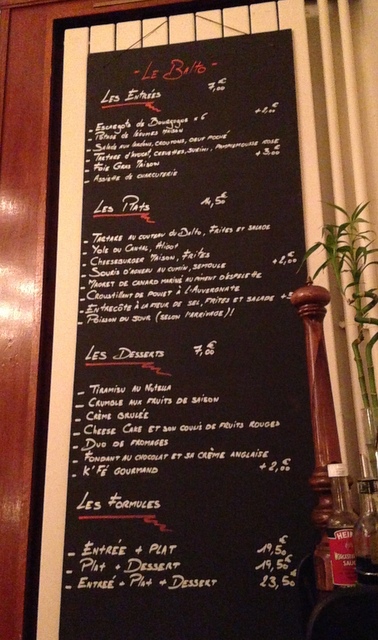 - Le Balto -
Les Entrées 7,00€
- Escargots de Bourgogne x 6 +2,00
- Potage de légumes maison
- Salade aux lardons, croutons, oeuf poché
- Tartare d'avocat, crevettes, surimi, pamplemousse rose
- Foie Gras Maison +3,00
- Assiette de charcuterie
Les Plats 14,50€
- Tartare au couteau du Balto, frites et salade
- Cantal, Aligot
- Cheeseburger Maison, Frites
- Souris d'agneau au cumin, semoule +2,00
- Magret de canard mariné au piment d'espelette
- Croustillant de poulet à l'Auvergnate
- Entrecôte à la fleur de sel, frites et salade
- Poisson du jour (selon l'arrivage)!
Les Desserts 7,00€
- Tiramisu au Nutella
- Crumble aux fruits de saison
- Crème brulée
- Cheese Cake et son coulis de fruits rouges
- Duo de fromages
- Fondant au chocolat et sa crème anglaise
- K'Fé gourmand +2,00
Les Formules
- Entrée + Plat 19,50€
- Plat + Dessert 19,50€
- Entrée + Plat + Dessert 23,50€